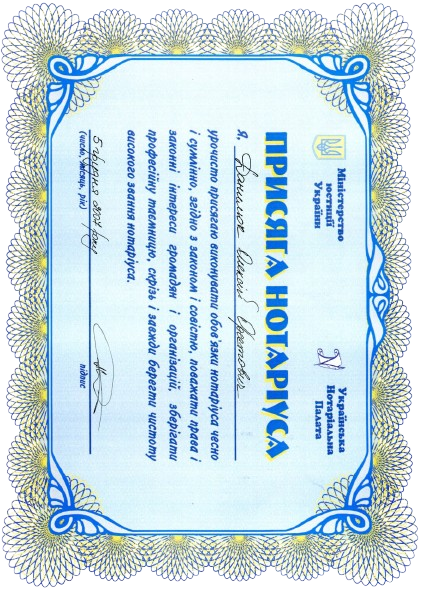 Міністерство
юстиції
України
Українська
Нотаріальна
Палата
ПРИСЯГА НОТАРІУСА
Я,
урочисто присягаю виконувати обов'язки нотаріуса чесно
і сумлінно, згідно з законом і совістю, поважати права і
законні інтереси громадян і організацій, зберігати
професійну таємницю, скрізь і завжди берегти чистоту
високого звання нотаріуса.
(число, місяць, рік)
підпис